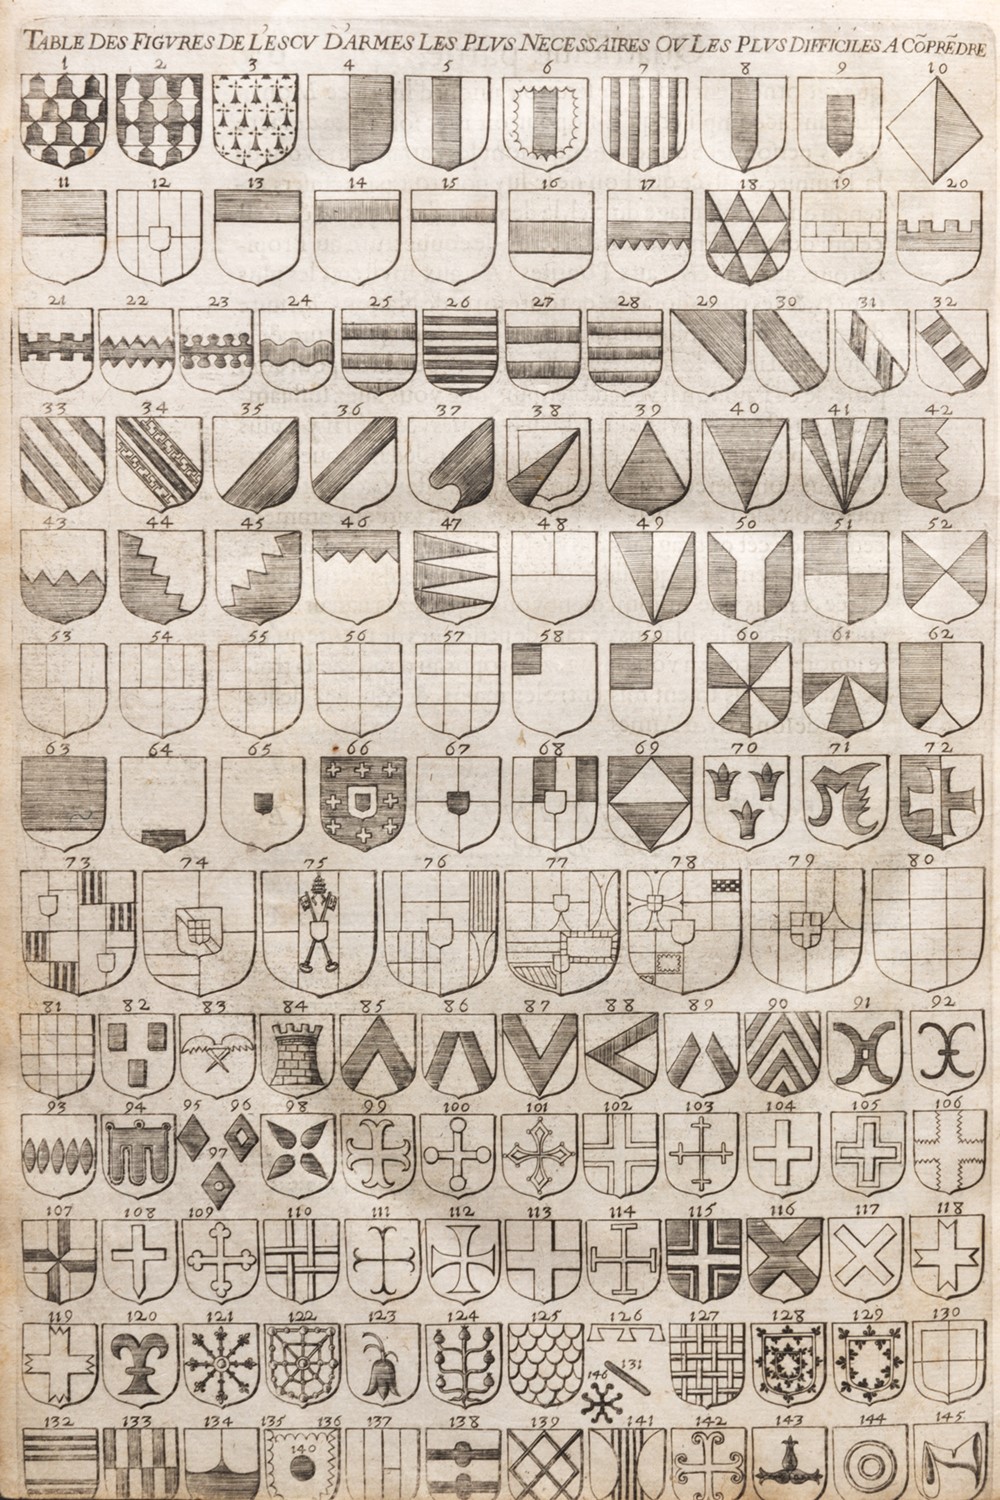 TABLE DES FIGVRES DE L'ESCV D'ARMES LES PLVS NECESSAIRES OV LES PLVS DIFFICILES A CÕPRẼDRE
1 2 3 4 5 6 7 8 9 10
11 12 13 14 15 16 17 18 19 20
21 22 23 24 25 26 27 28 29 30 31 32
33 34 35 36 37 38 39 40 41 42
43 44 45 46 47 48 49 50 51 52
53 54 55 56 57 58 59 60 61 62
63 64 65 66 67 68 69 70 71 72
73 74 75 76 77 78 79 80
81 82 83 84 85 86 87 88 89 90 91 92
93 94 95 96 98 99 100 101 102 103 104 105 106
97
107 108 109 110 111 112 113 114 115 116 117 118
119 120 121 122 123 124 125 126 127 128 129 130
131
146
132 133 134 135 136 137 138 139 141 142 143 144 145
140